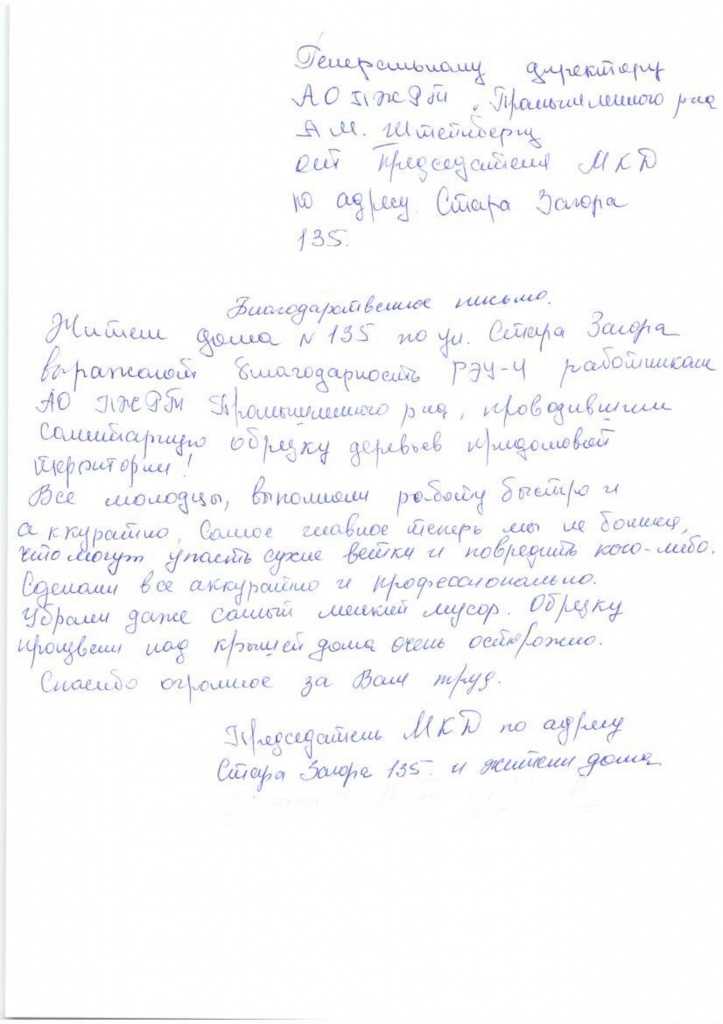 Генеральному директору
АО ПЖРТ "Промышленного р-на
А.М. Штейнбергу
от Председателя МКД
по адресу. Стара Загора
135.
Благодарственное письмо.
Жители дома N 135 по ул. Стара Загора
выражают благодарность РЭУ-4 работникам
АО ПЖРТ Промышленного р-на, проводившим
санитарную обрезку деревьев придомовой
территории!
Все молодцы, выполнили работу быстро и
аккуратно. Самое главное теперь мы не боимся,
что могут упасть сухие ветки и повредить кого-либо.
Сделали все аккуратно и профессионально.
Убрали даже самый мелкий мусор. Обрезку
произвели над крышей дома очень осторожно.
Спасибо огромное за Ваш труд.
Председатель МКД по адресу
Стара Загора 135. и жители дома